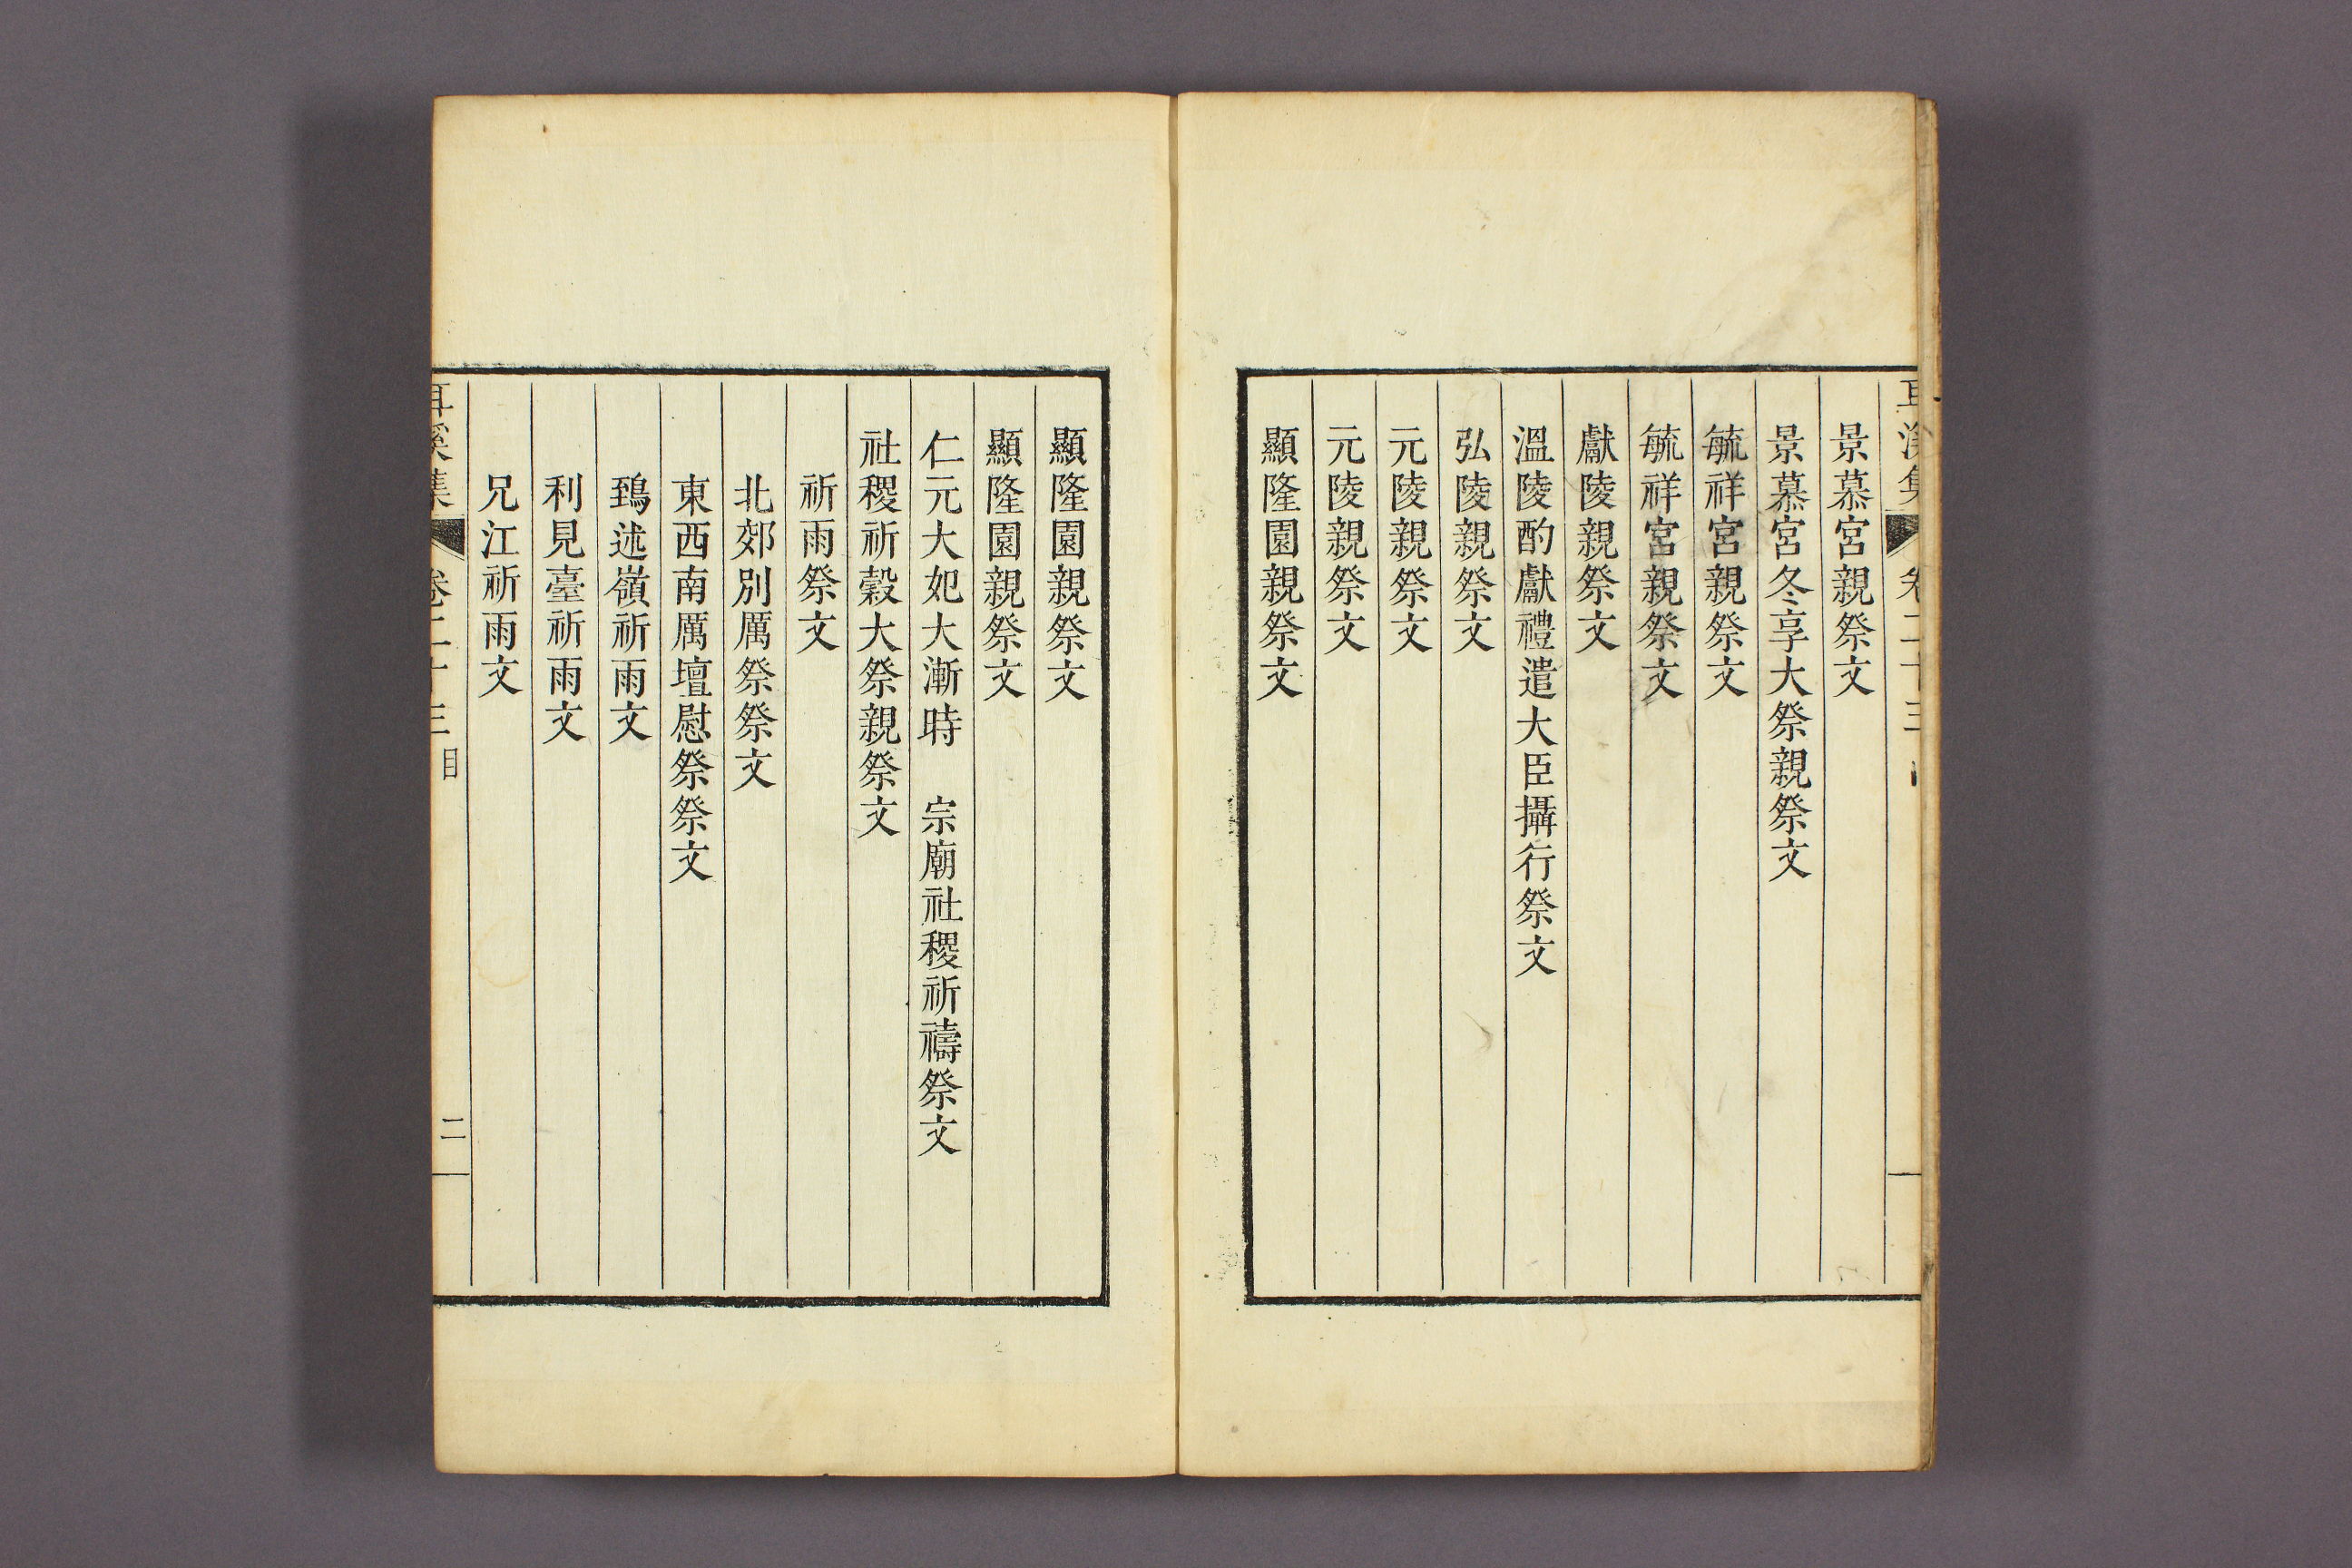 耳溪集 卷二十三
景慕宮親祭文
景慕宮冬享大祭親祭文
毓祥宮親祭文
毓祥宮親祭文
獻陵親祭文
溫陵酌獻禮遣大臣攝行祭文
弘陵親祭文
元陵親祭文
元陵親祭文
顯隆園親祭文
顯隆園親祭文
顯隆園親祭文
仁元大妃大漸時 宗廟社稷祈禱祭文
社稷祈穀大祭親祭文
祈雨祭文
北郊別厲祭祭文
東西南厲壇慰祭祭文
鵄述嶺祈雨文
利見臺祈雨文
兄江祈雨文
耳溪集 卷二十三 目 二